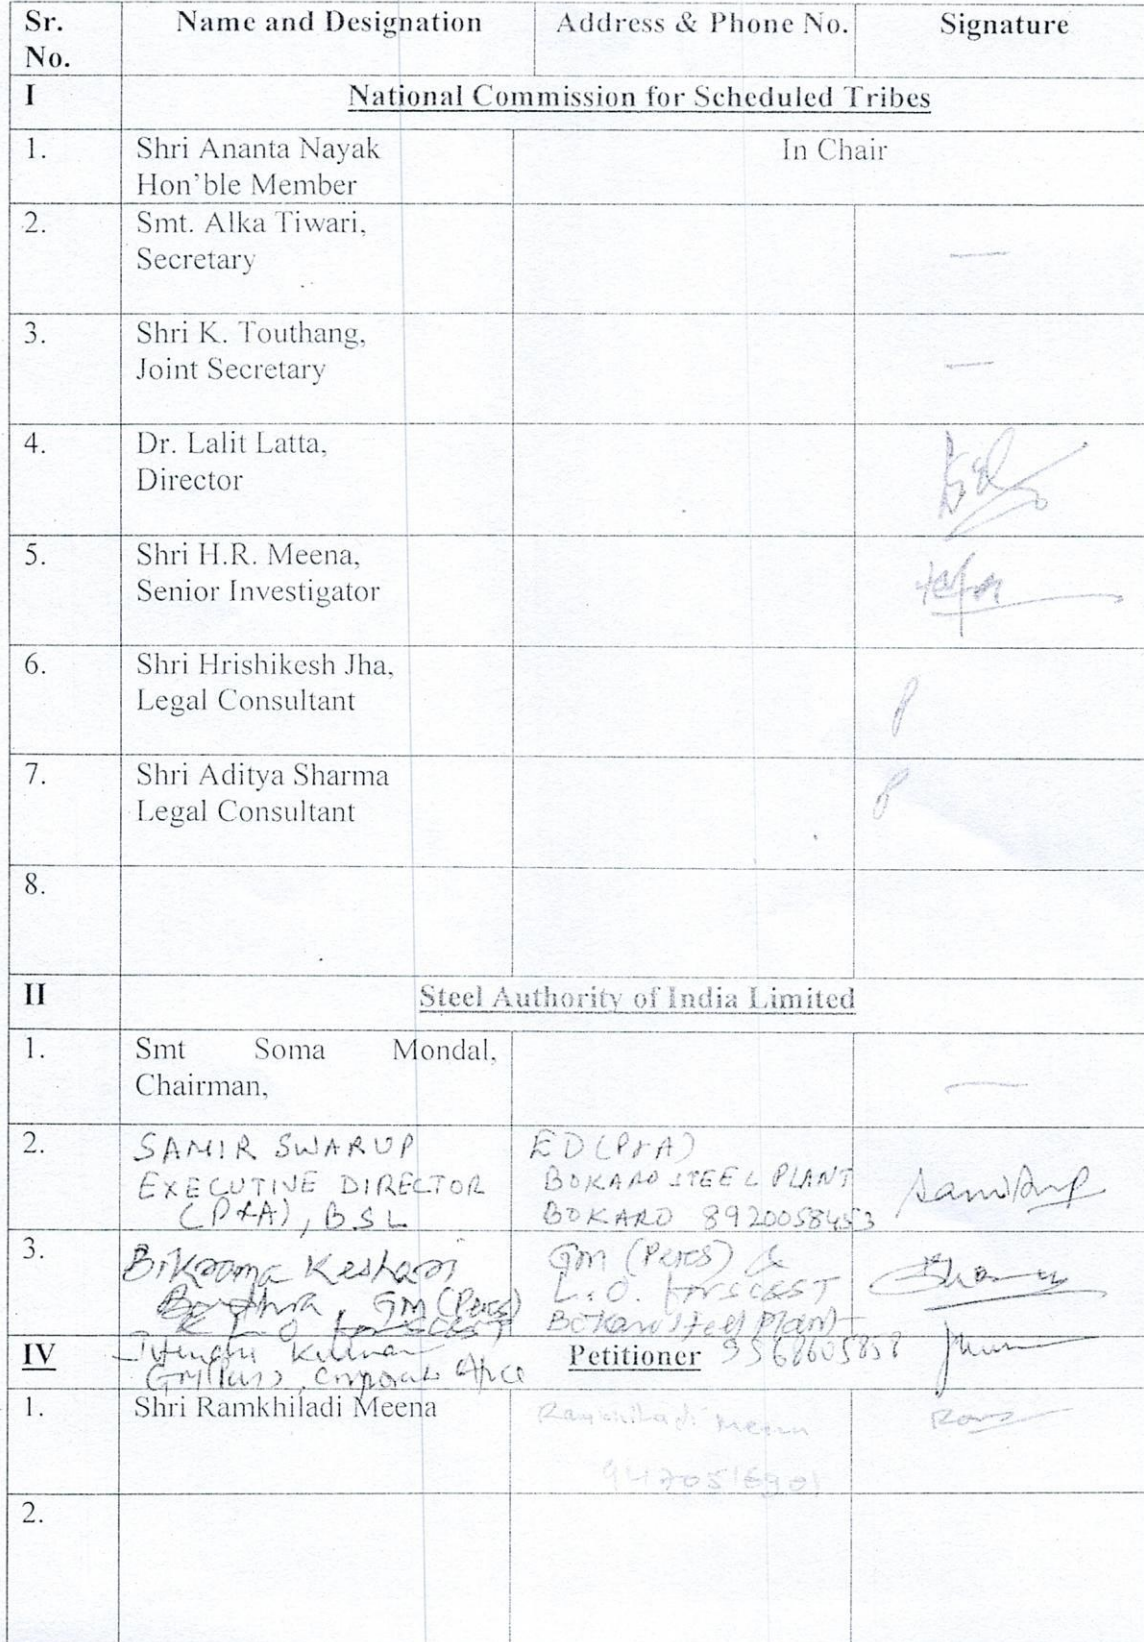 Sr. No. Name and Designation Address & Phone No. Signature
I National Commission for Scheduled Tribes
1. Shri Ananta Nayak In Chair
Hon'ble Member
2. Smt. Alka Tiwari,
Secretary
3. Shri K. Touthang,
Joint Secretary
4. Dr. Lalit Latta,
Director
5. Shri H.R. Meena,
Senior Investigator
6. Shri Hrishikesh Jha,
Legal Consultant
7. Shri Aditya Sharma
Legal Consultant
8.
II Steel Authority of India Limited
1. Smt Soma Mondal,
Chairman,
2. SAMIR SWARUP ED (P&A)
EXECUTIVE DIRECTOR BOKARO STEEL PLANT
(P&A), BSL BOKARO 8920058453
3. Bikrama Keshari GM (Pers) &
GM (Pers) L.O. for SC&ST
& L.O. for SC&ST Bokaro Steel Plant
IV Jitendra Kumar Petitioner
GM (Pers), Corporate Office
1. Shri Ramkhiladi Meena Ramkhiladi Meena
2.